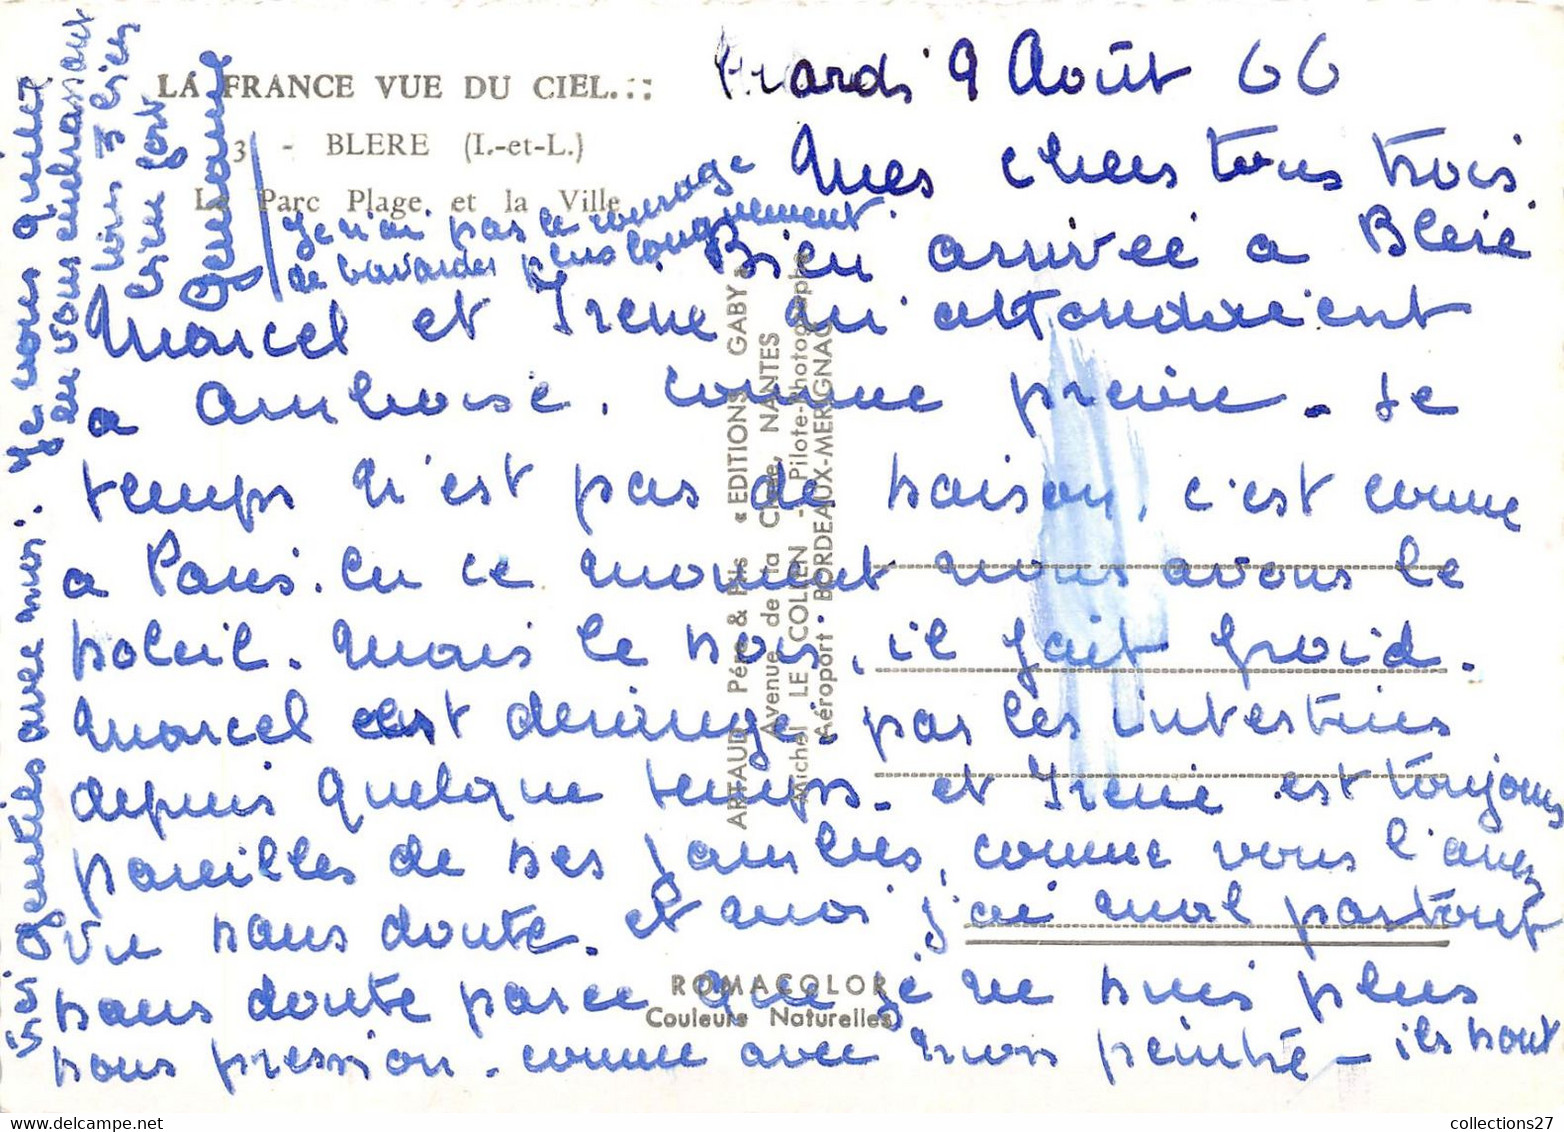 LA FRANCE VUE DU CIEL...::
3 - BLERE (I.-et-L.)
Le Parc Plage et la Ville
Mardi 9 Août 66
Mes chers tous trois.
Bien arrivée a Bleré
Marcel et Irene m'attendaient
a Amboise. comme prévue - Le
temps n'est pas de saison, c'est comme
a Paris. En ce moment nous avons le
soleil. Mais le soir, il fait froid.
Marcel est derangé par les intestins
depuis quelque temps - et Irene est toujours
pareilles de ses jambes, comme vous l'avez
vu sans doute. et moi j'ai mal partout
sans doute parce que je ne suis plus
sous pression. comme avec mon peintre - ils sont
très gentils avec moi.. Je vous quitte
en vous embrassant
tous 3 bien
bien fort
Germaine
Je n'ai pas le courage
de bavarder plus longuement.
ARTAUD Père & Fils « EDITIONS GABY »
Avenue de la Close, NANTES
Michel LE COLLEN - Pilote-Photographe
Aéroport BORDEAUX-MERIGNAC
ROMACOLOR
Couleurs Naturelles
collections27